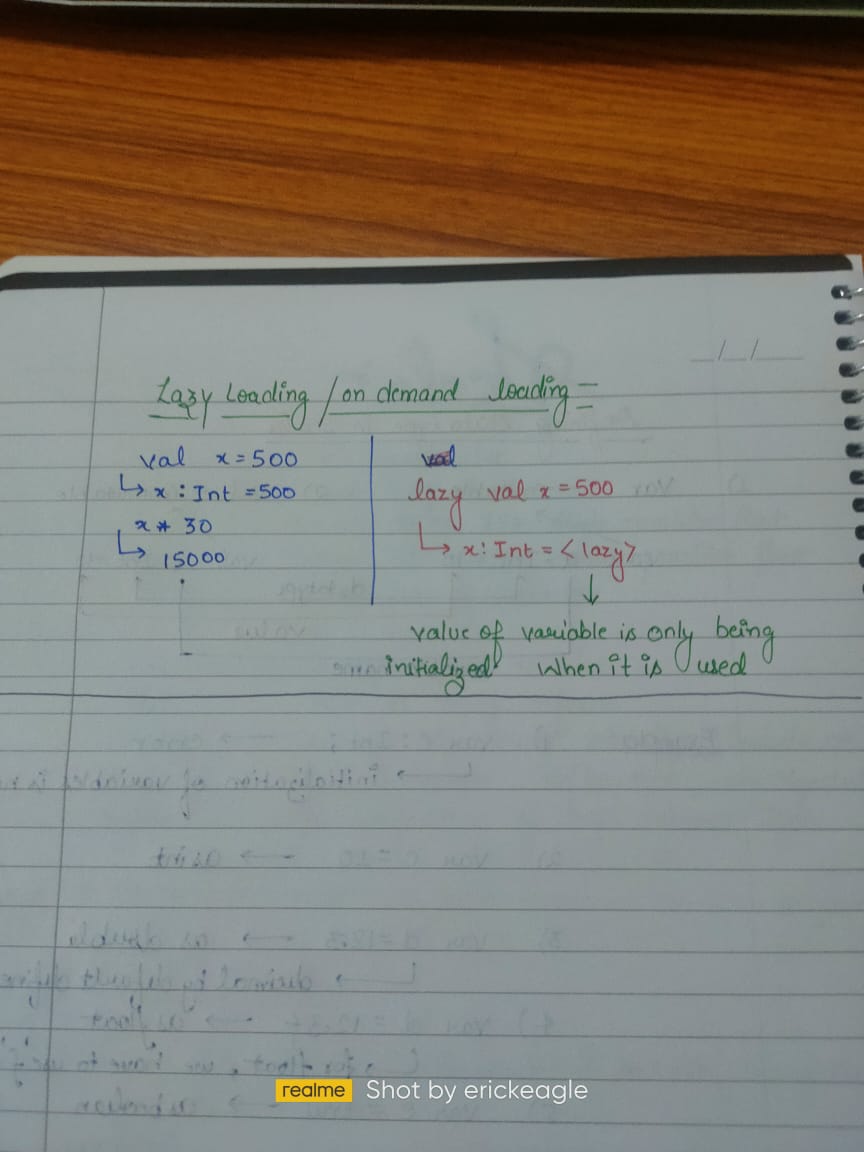 Lazy Loading / on demand loading =
val x = 500
↳ x : Int = 500
x * 30
↳ 15000
val
lazy val x = 500
↳ x : Int = <lazy>
↓
value of variable is only being
initialized when it is used
realme Shot by erickeagle